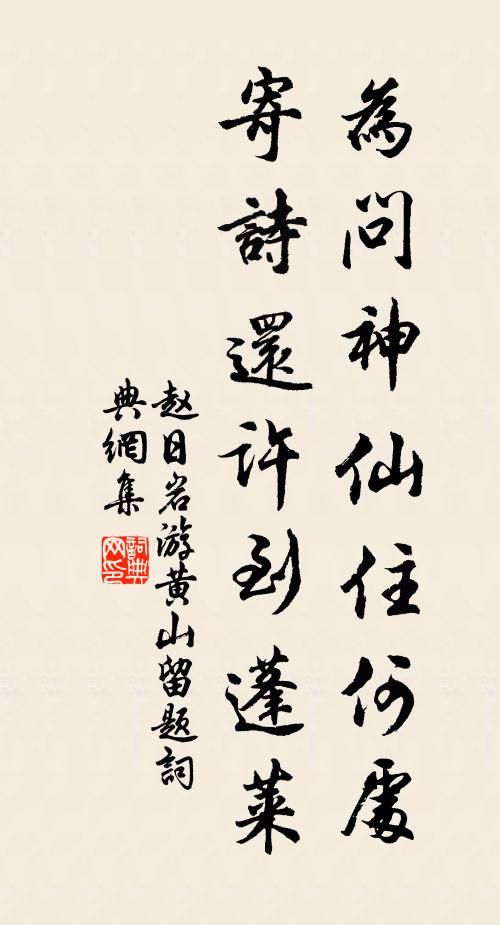 為問神仙住何處
寄詩還許到蓬萊
赵日岩游黄山留题詞
典網集
詞典
网印